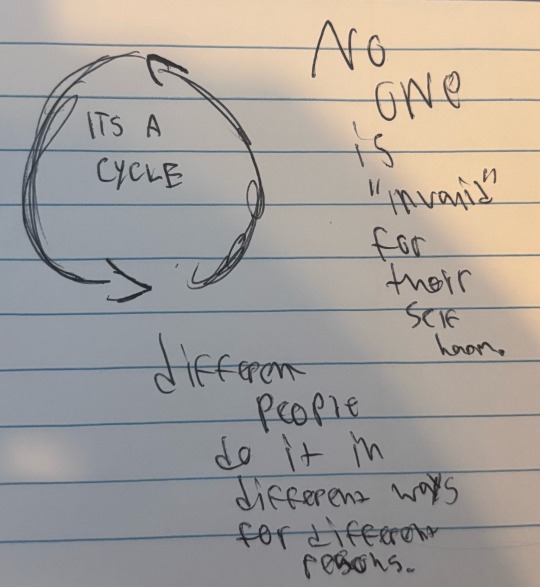 ITS A
CYCLE
NO
ONE
is
"invalid"
for
their
self
harm.
different
people
do it in
different ways
for different
reasons.